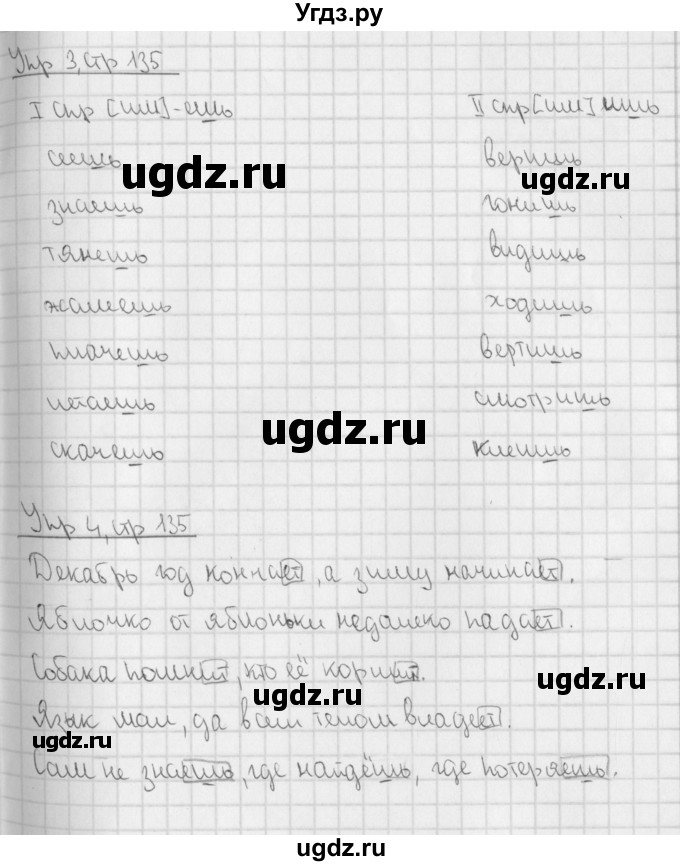 Угдз.ру
Упр 3, стр 135
I спр [иш] - ешь
II спр [иш] ишь
сеешь
веришь
знаешь
гонишь
тянешь
видишь
жалеешь
ходишь
плачешь
вертишь
летаешь
смотришь
скачешь
клеишь
ugdz.ru
ugdz.ru
ugdz.ru
ugdz.ru
Упр 4, стр 135
Декабрь год кончает, а зиму начинает.
Яблочко от яблоньки недалеко падает.
Собака помнит, кто её кормит.
Язык мал, да всем телом владеет.
Сам не знаешь, где найдёшь, где потеряешь.
ugdz.ru
ugdz.ru
ugdz.ru
ugdz.ru